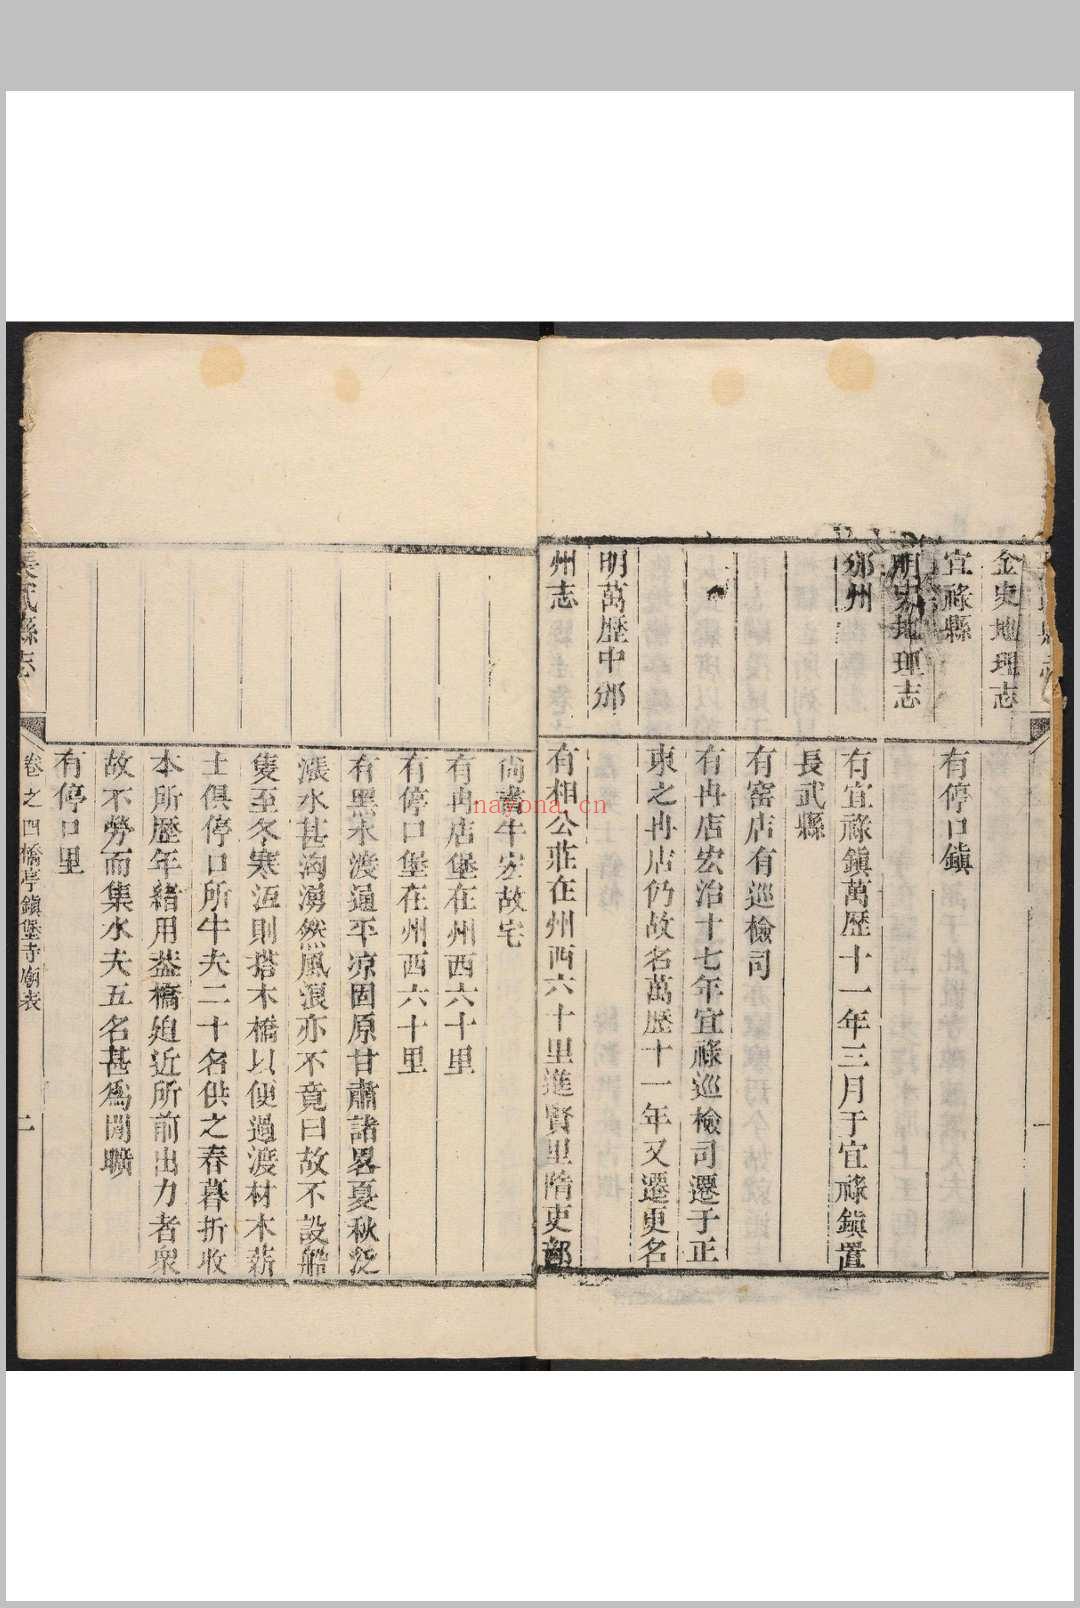 金史地理志
宜祿縣
有停口鎮
明史地理志
邠州
有宜祿鎮萬歷十一年三月于宜祿鎮置
長武縣
有窑店有巡檢司
有冉店宏治十七年宜祿巡檢司遷于正
東之冉店仍故名萬歷十一年又遷更名
明萬歷中邠
州志
有相公莊在州西六十里進賢里隋吏部
尚書牛宏故宅
有冉店堡在州西六十里
有停口堡在州西六十里
有黑水渡通平凉固原甘肅諸畧夏秋泛
漲水甚洶湧然風浪亦不竟曰故不設船
隻至冬寒沍則搭木橋以便過渡材木薪
土俱停口所牛夫二十名供之春暮折收
本所歷年緒用葢橋廹近所前出力者衆
故不勞而集水夫五名甚為閒曠
有停口里
長武縣志
卷之四橋亭鎮堡寺廟表
二
nayona.cn